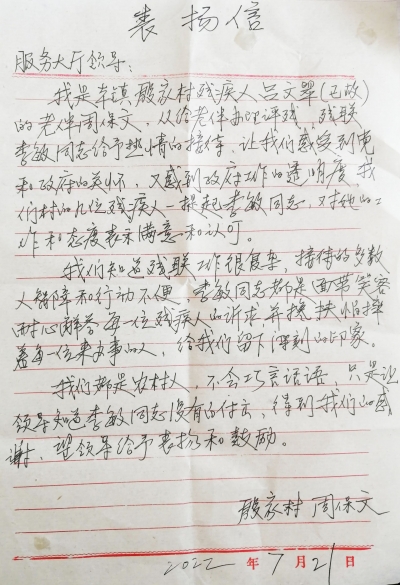 表扬信
服务大厅领导:
我是辛镇殷家村残疾人吕文翠(已故)
的老伴周保文,从给老伴办理评残,残联
李敏同志给予热情的接待,让我们感受到党
和政府的关怀,又感到政府工作的透明度,我
们村的九位残疾人一提起李敏同志,对他的工
作和态度表示满意和认可。
我们知道残联工作很复杂,接待的多数
人智障和行动不便,李敏同志都是面带笑容
耐心解答每一位残疾人的诉求,并搀扶
着每一位来办事的人,给我们留下深刻的印象。
我们都是农村人,不会巧言话语,只是让
领导知道李敏同志没有白付出,得到我们的感
谢,望领导给予表扬和鼓励。
殷家村 周保文
2022年7月21日